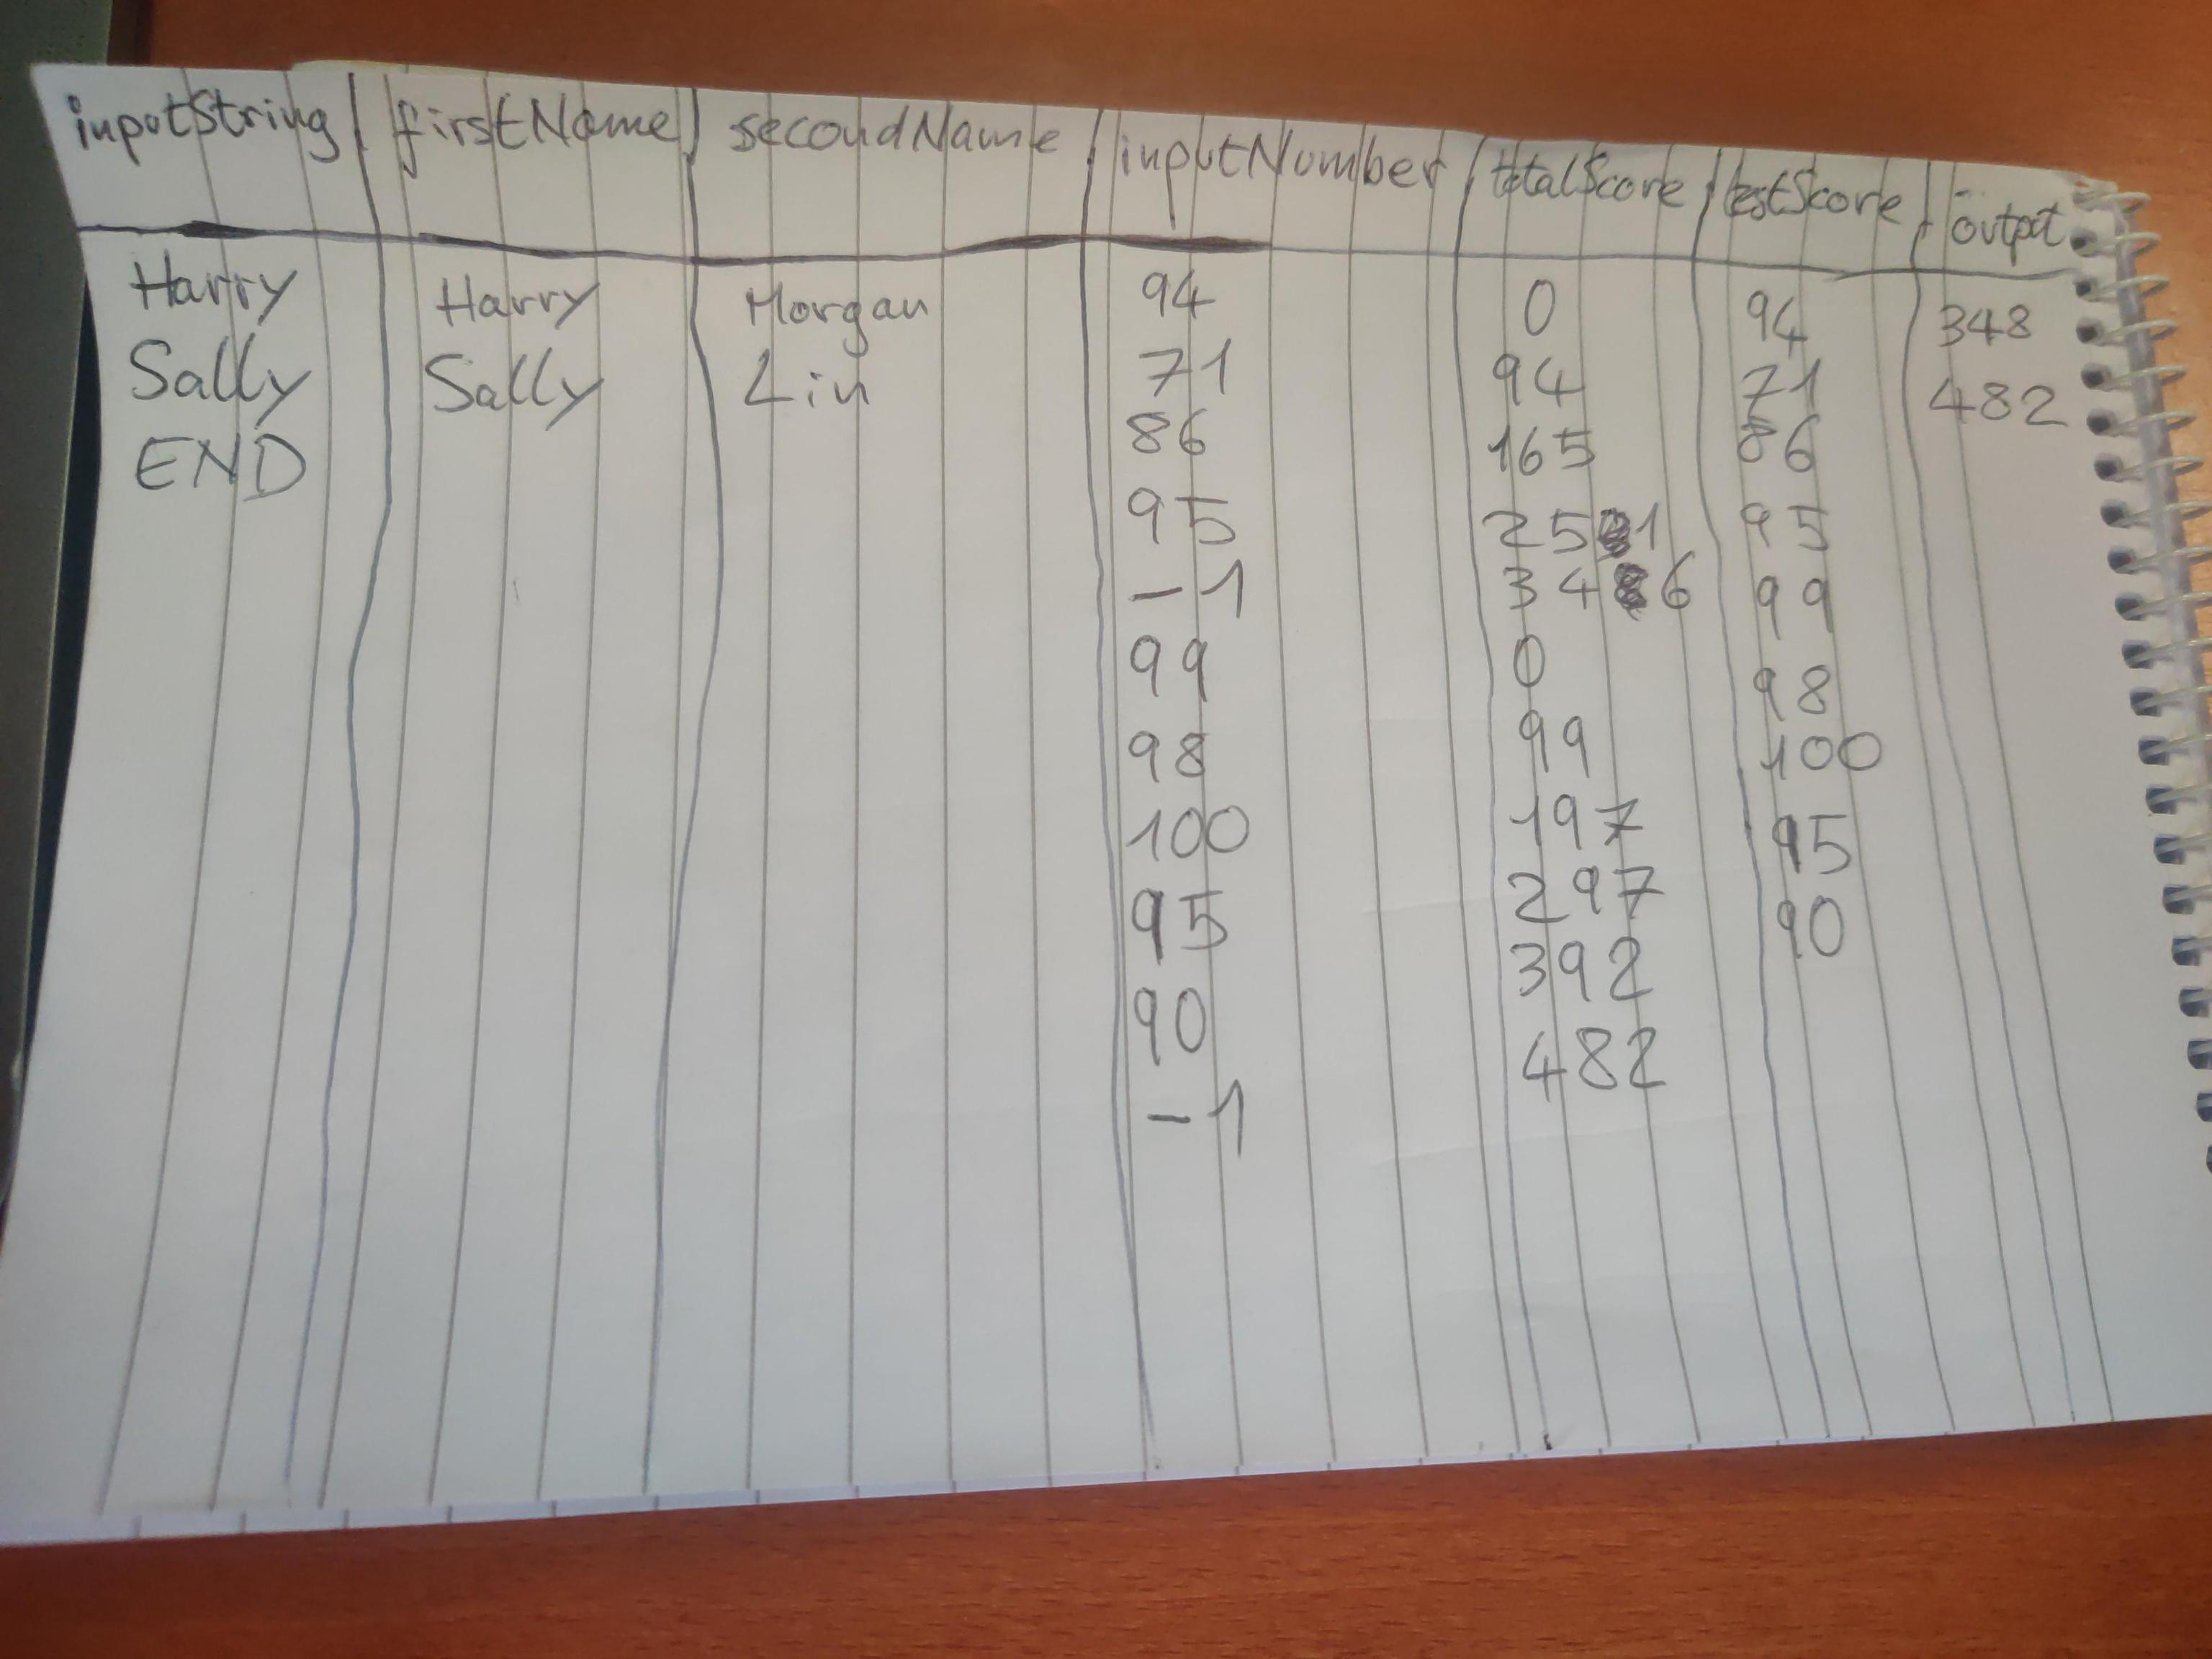 inputString firstName secondName inputNumber totalScore testScore output
Harry Harry Morgan 94 0 94 348
Sally Sally Lin 71 94 71 482
END 86 165 86
95 251 95
-1 346 99
99 0 98
98 99 100
100 197 95
95 297 90
90 392
-1 482